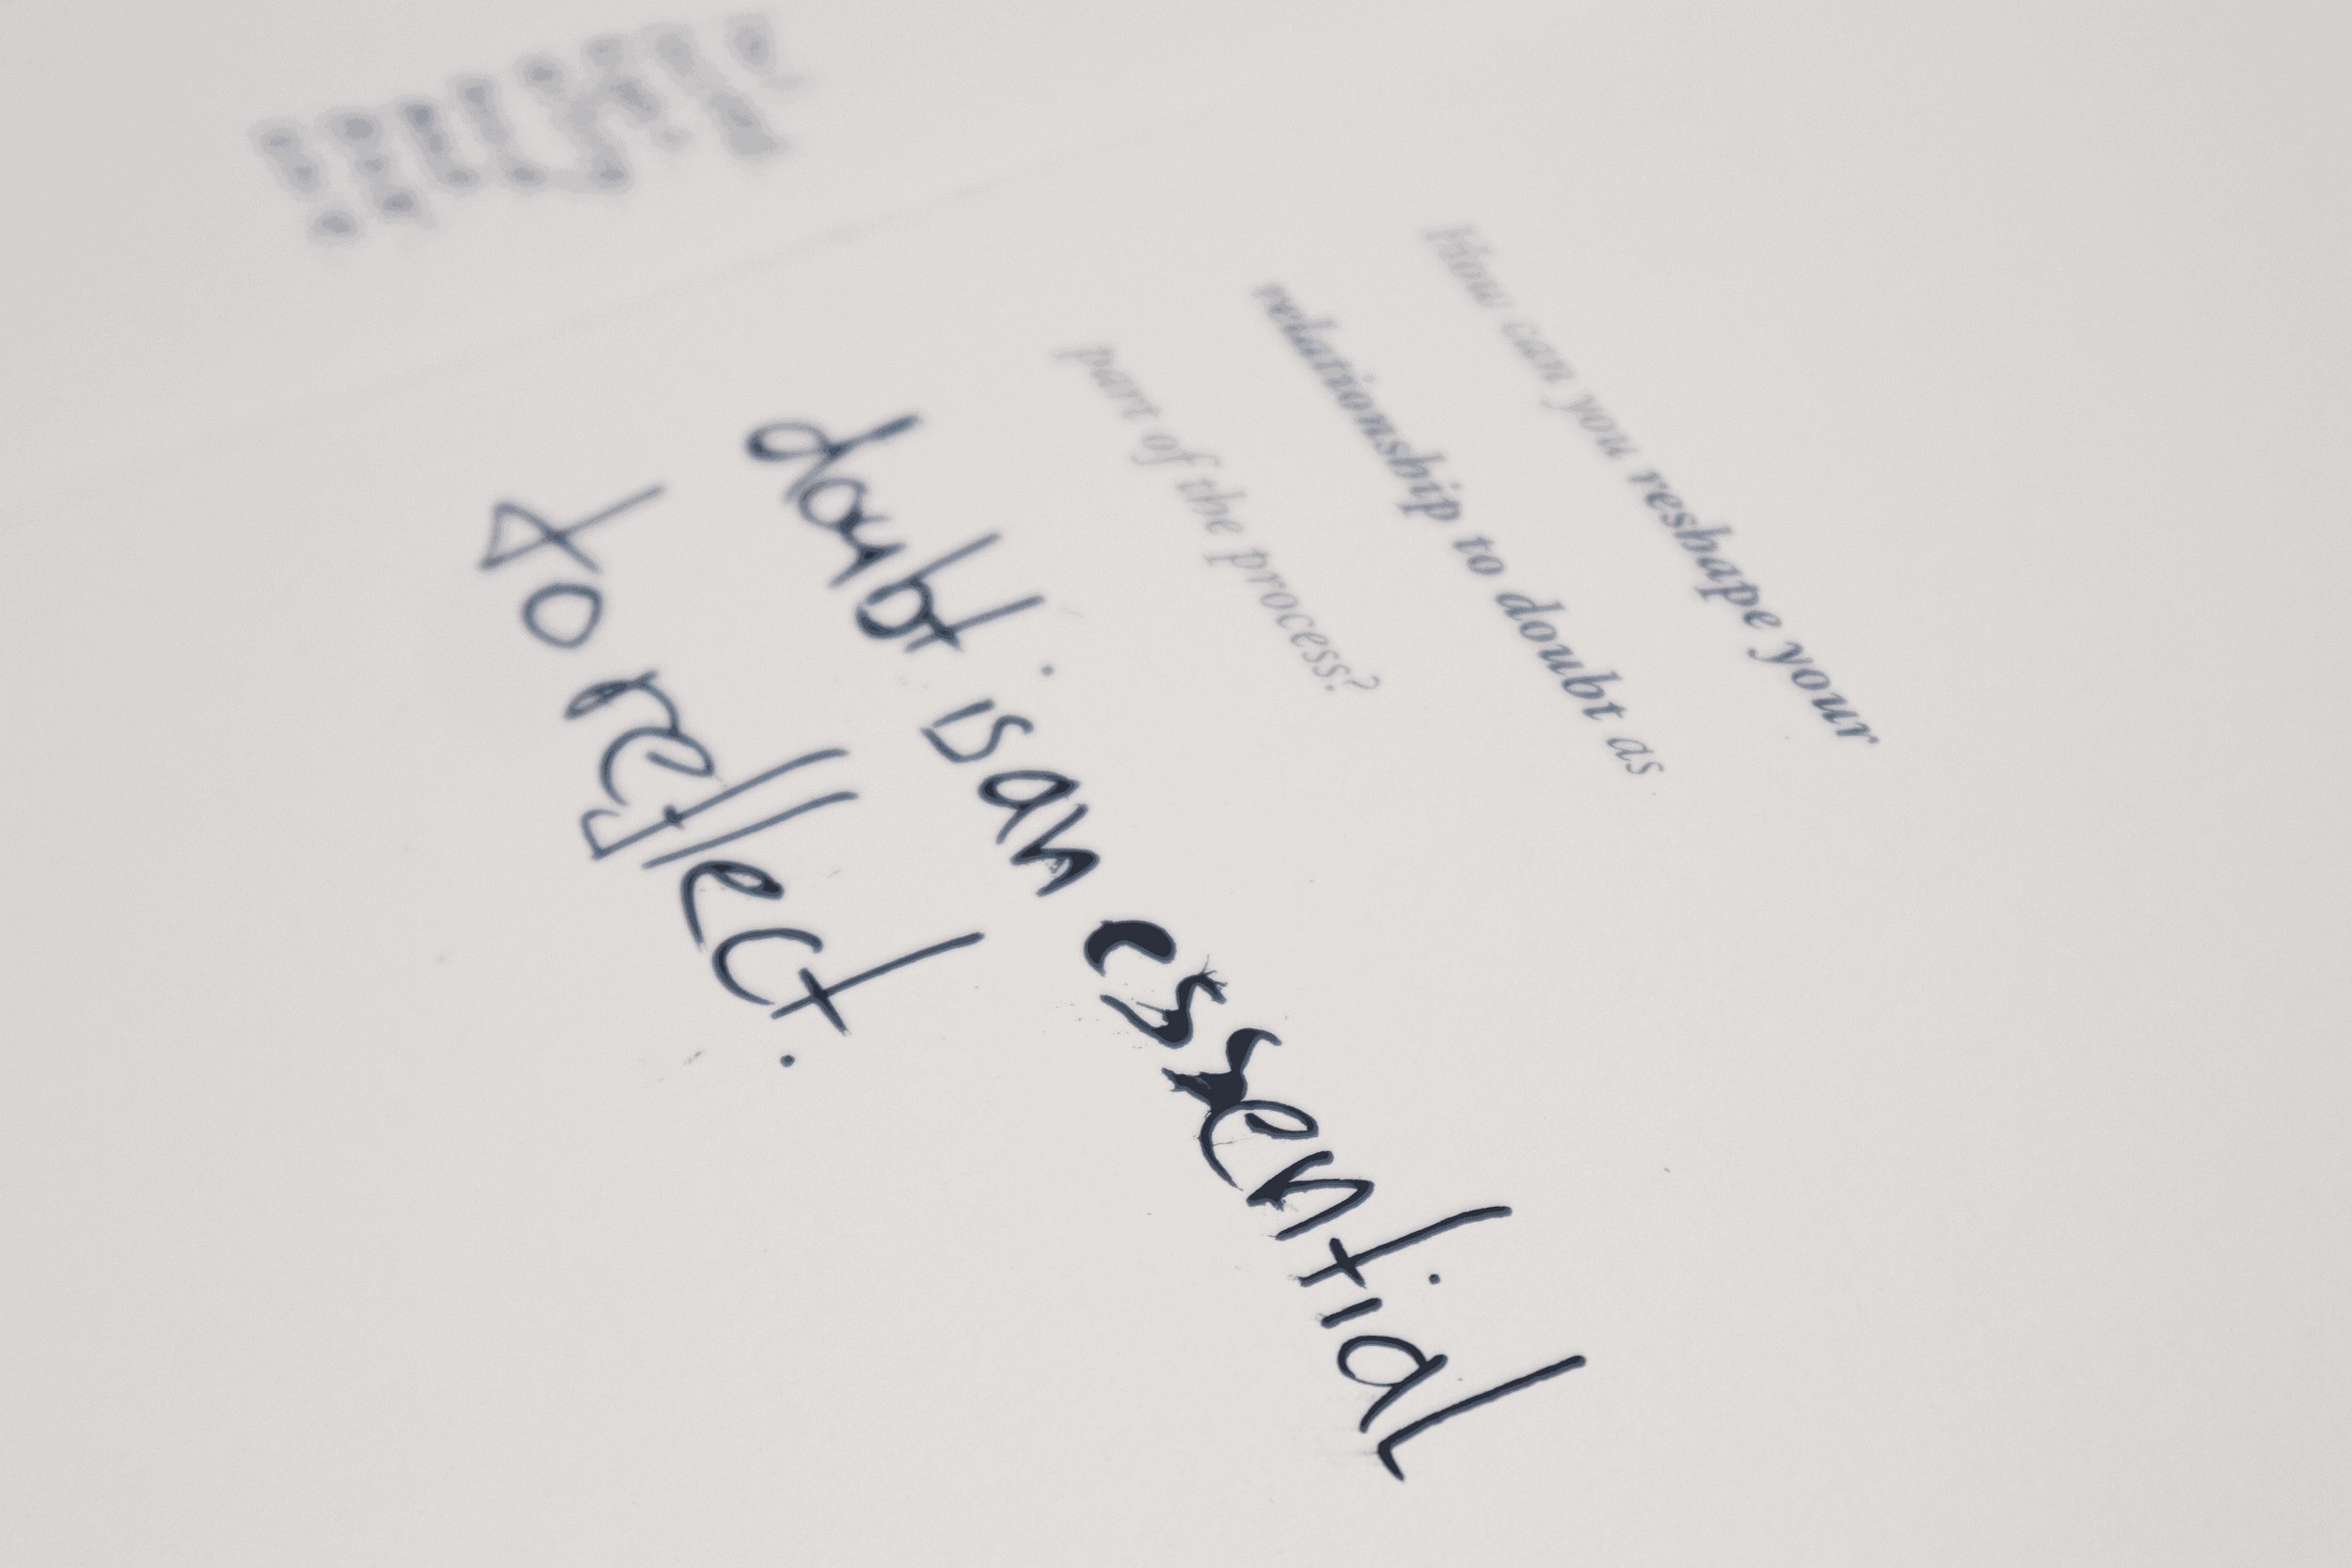 How can you reshape your
relationship to doubt as
part of the process?
doubt is an essential
to reflect.